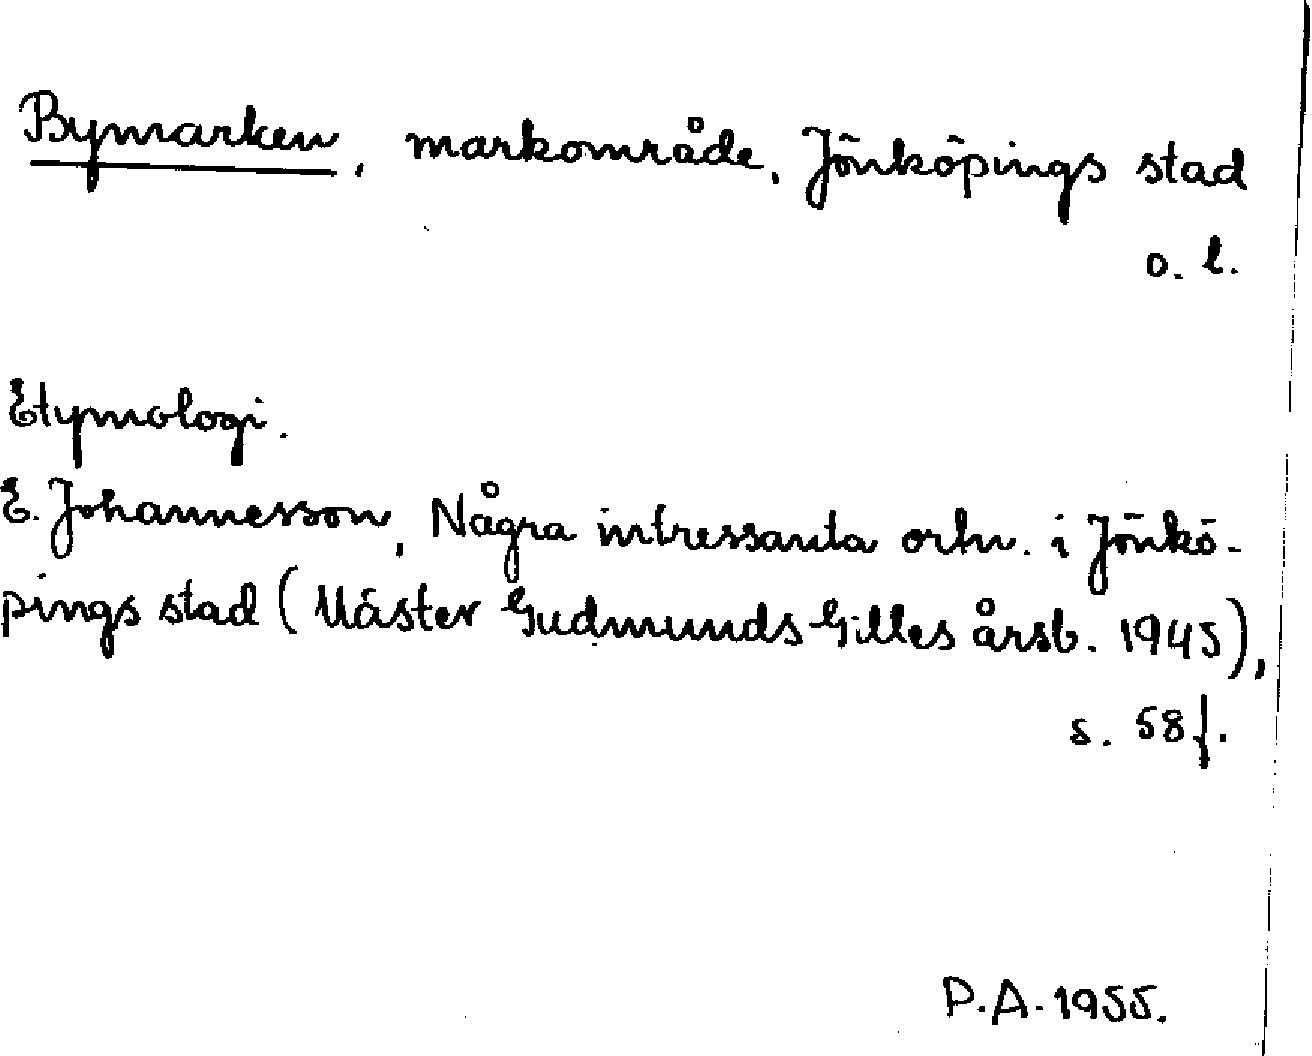 Bymarken, markområde, Jönköpings stad
o. l.
Etymologi.
E. Johannesson, Några intressanta ortn. i Jönkö-
pings stad (Mäster Gudmunds Gilles årsb. 1945),
s. 58 f.
P.A. 1955.